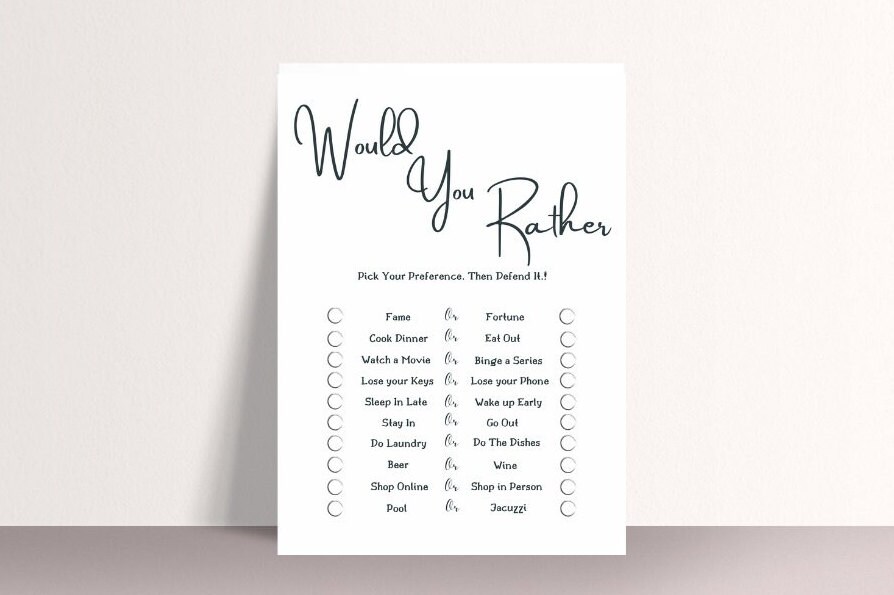 Would
You
Rather
Pick Your Preference. Then Defend It.!
Fame Or Fortune
Cook Dinner Or Eat Out
Watch a Movie Or Binge a Series
Lose your Keys Or Lose your Phone
Sleep In Late Or Wake up Early
Stay In Or Go Out
Do Laundry Or Do The Dishes
Beer Or Wine
Shop Online Or Shop in Person
Pool Or Jacuzzi